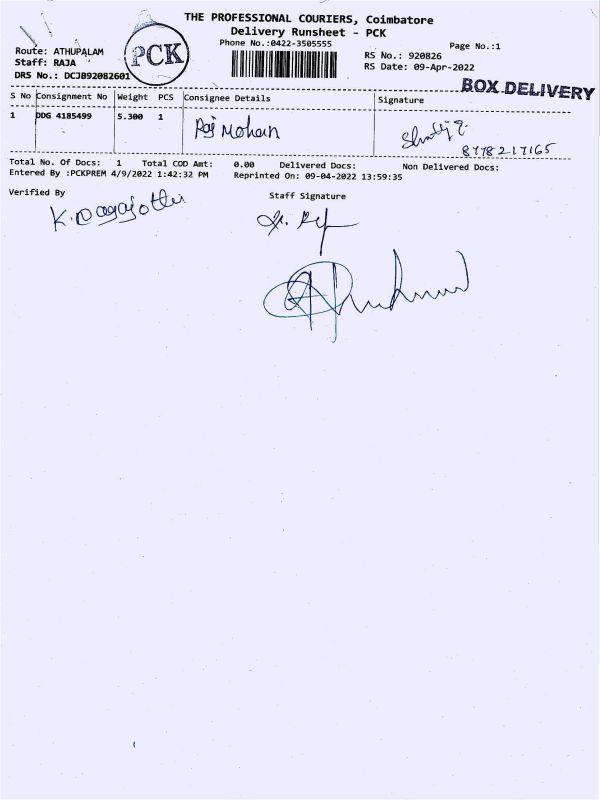 THE PROFESSIONAL COURIERS, Coimbatore
Delivery Runsheet - PCK
Phone No.:0422-3505555
Page No.:1
Route: ATHUPALAM
Staff: RAJA
DRS No.: DCJB92082601
PCK
RS No.: 920826
RS Date: 09-Apr-2022
BOX DELIVERY
S No Consignment No Weight PCS Consignee Details Signature
1 DDG 4185499 5.300 1 Raj Mohan
8778217165
Total No. Of Docs: 1 Total COD Amt: 0.00 Delivered Docs: Non Delivered Docs:
Entered By :PCKPREM 4/9/2022 1:42:32 PM Reprinted On: 09-04-2022 13:59:35
Verified By Staff Signature